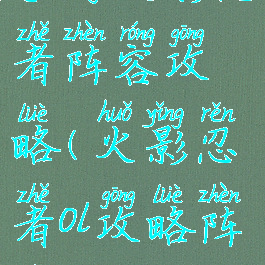 zhě zhèn róng gōng
者阵容攻
lüè huǒ yǐng rěn
略(火影忍
zhě gōng lüè zhèn
者ol攻略阵